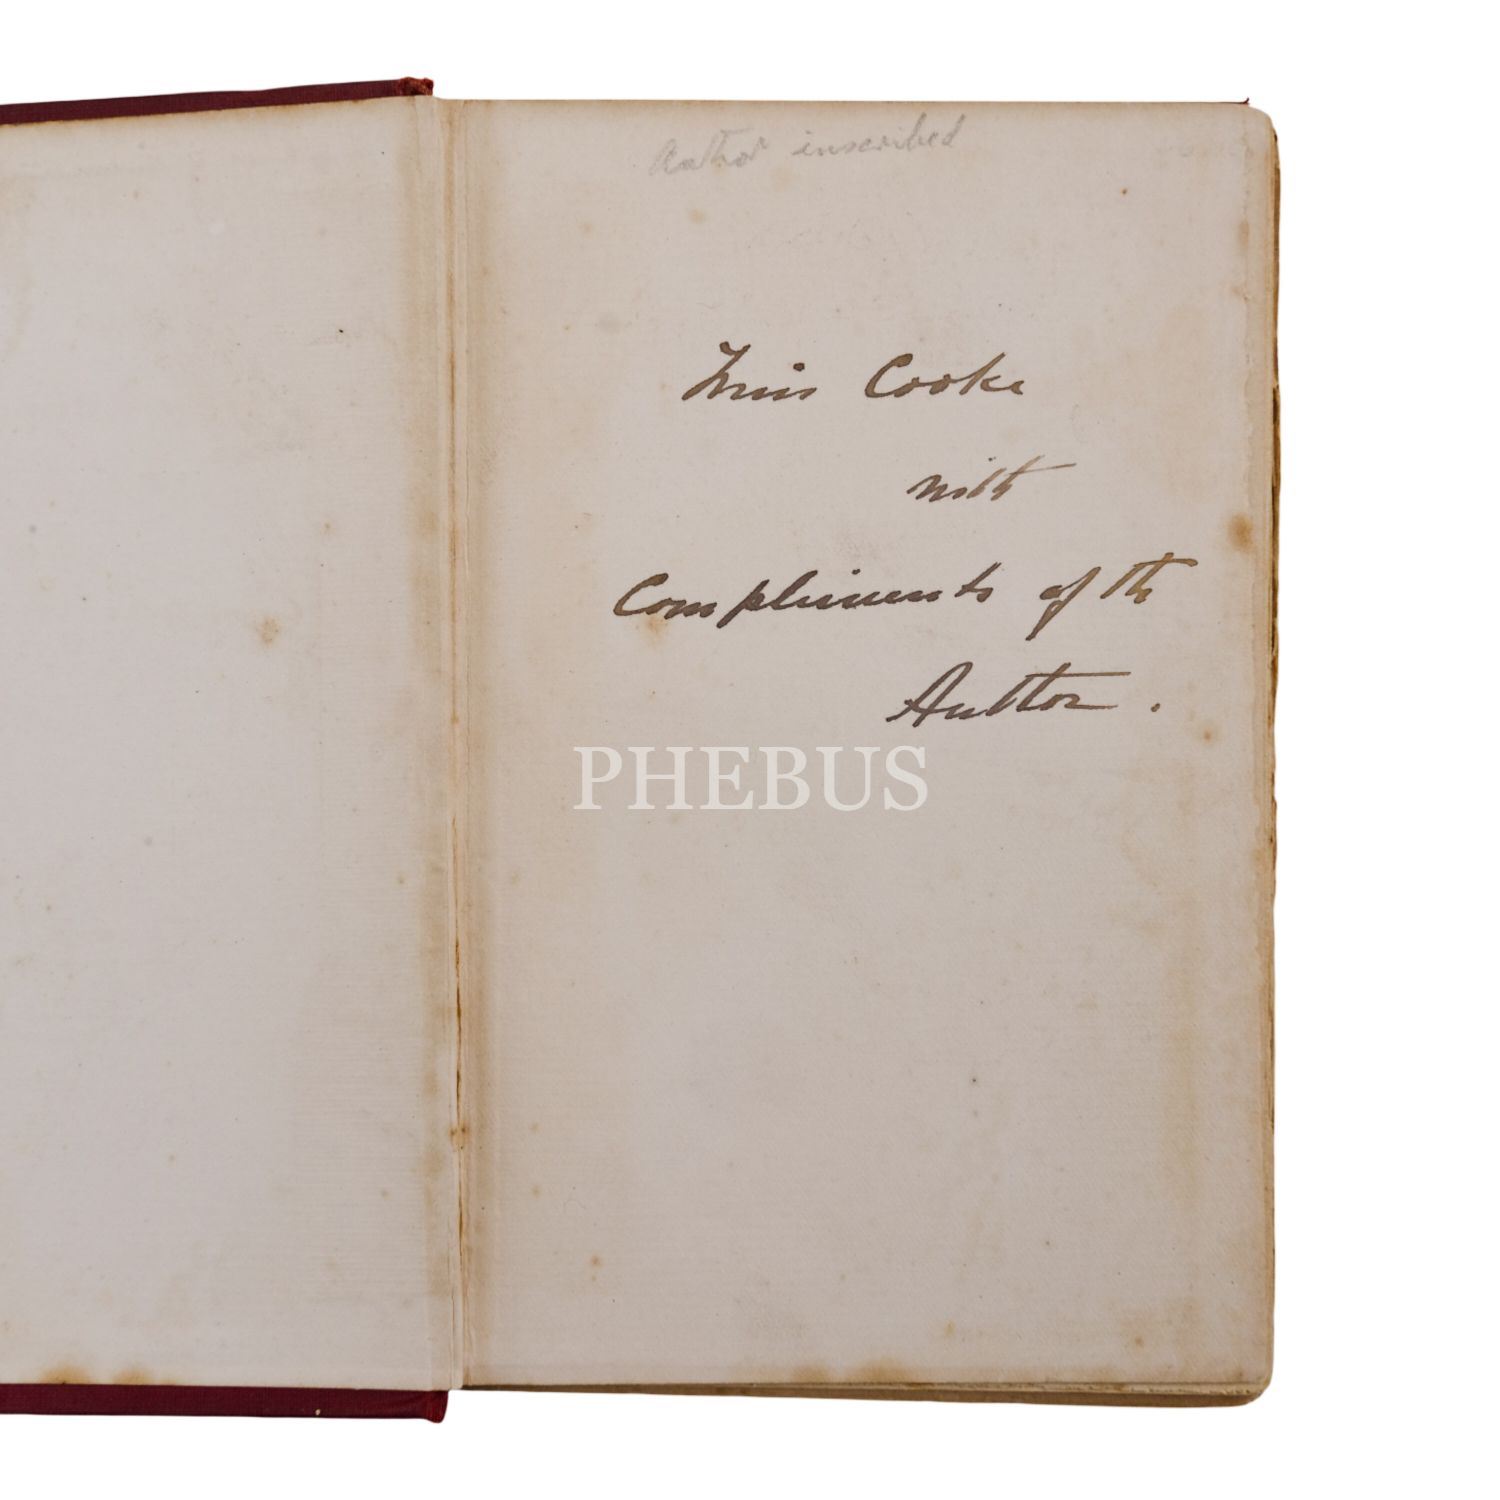 Author inscribed
Miss Cooke
with
Compliments of the
Author.
PHEBUS